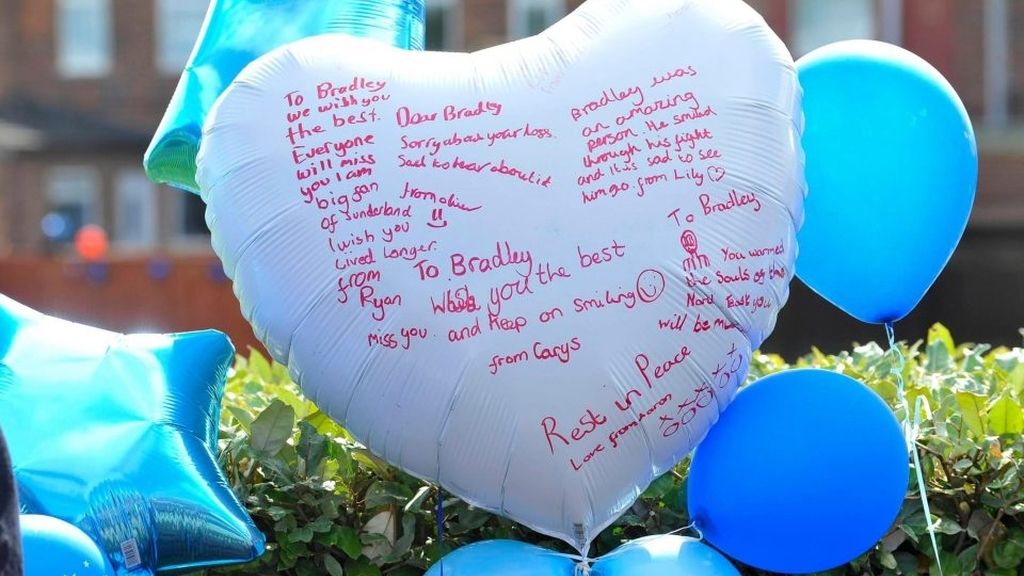 To Bradley
we wish you
the best.
Everyone
will miss
you I am
big fan
of Sunderland
I wish you
Lived Longer.
from
Ryan
miss you.
Dear Bradley
Sorry about your loss.
Sad to hear about it
from oliver
Bradley was
an amazing
person. He smiled
through his fight
and it is sad to see
him go. from Lily
To Bradley
Wish you the best
and keep on smiling
from Carys
To Bradley
You warmed
the souls of the
Nor East you
will be
Rest in Peace
Love from